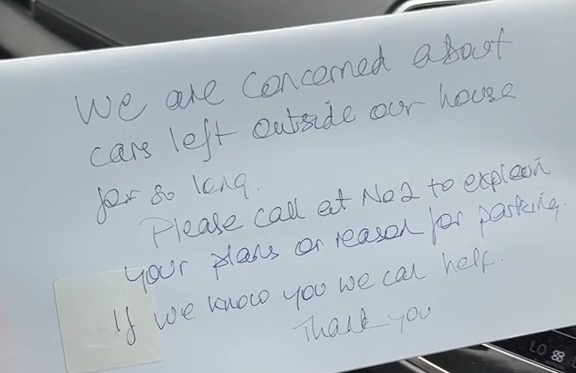 We are concerned about
cars left outside our house
for so long.
Please call at No 2 to explain
your plans or reason for parking.
If we know you we can help.
Thank you
LO